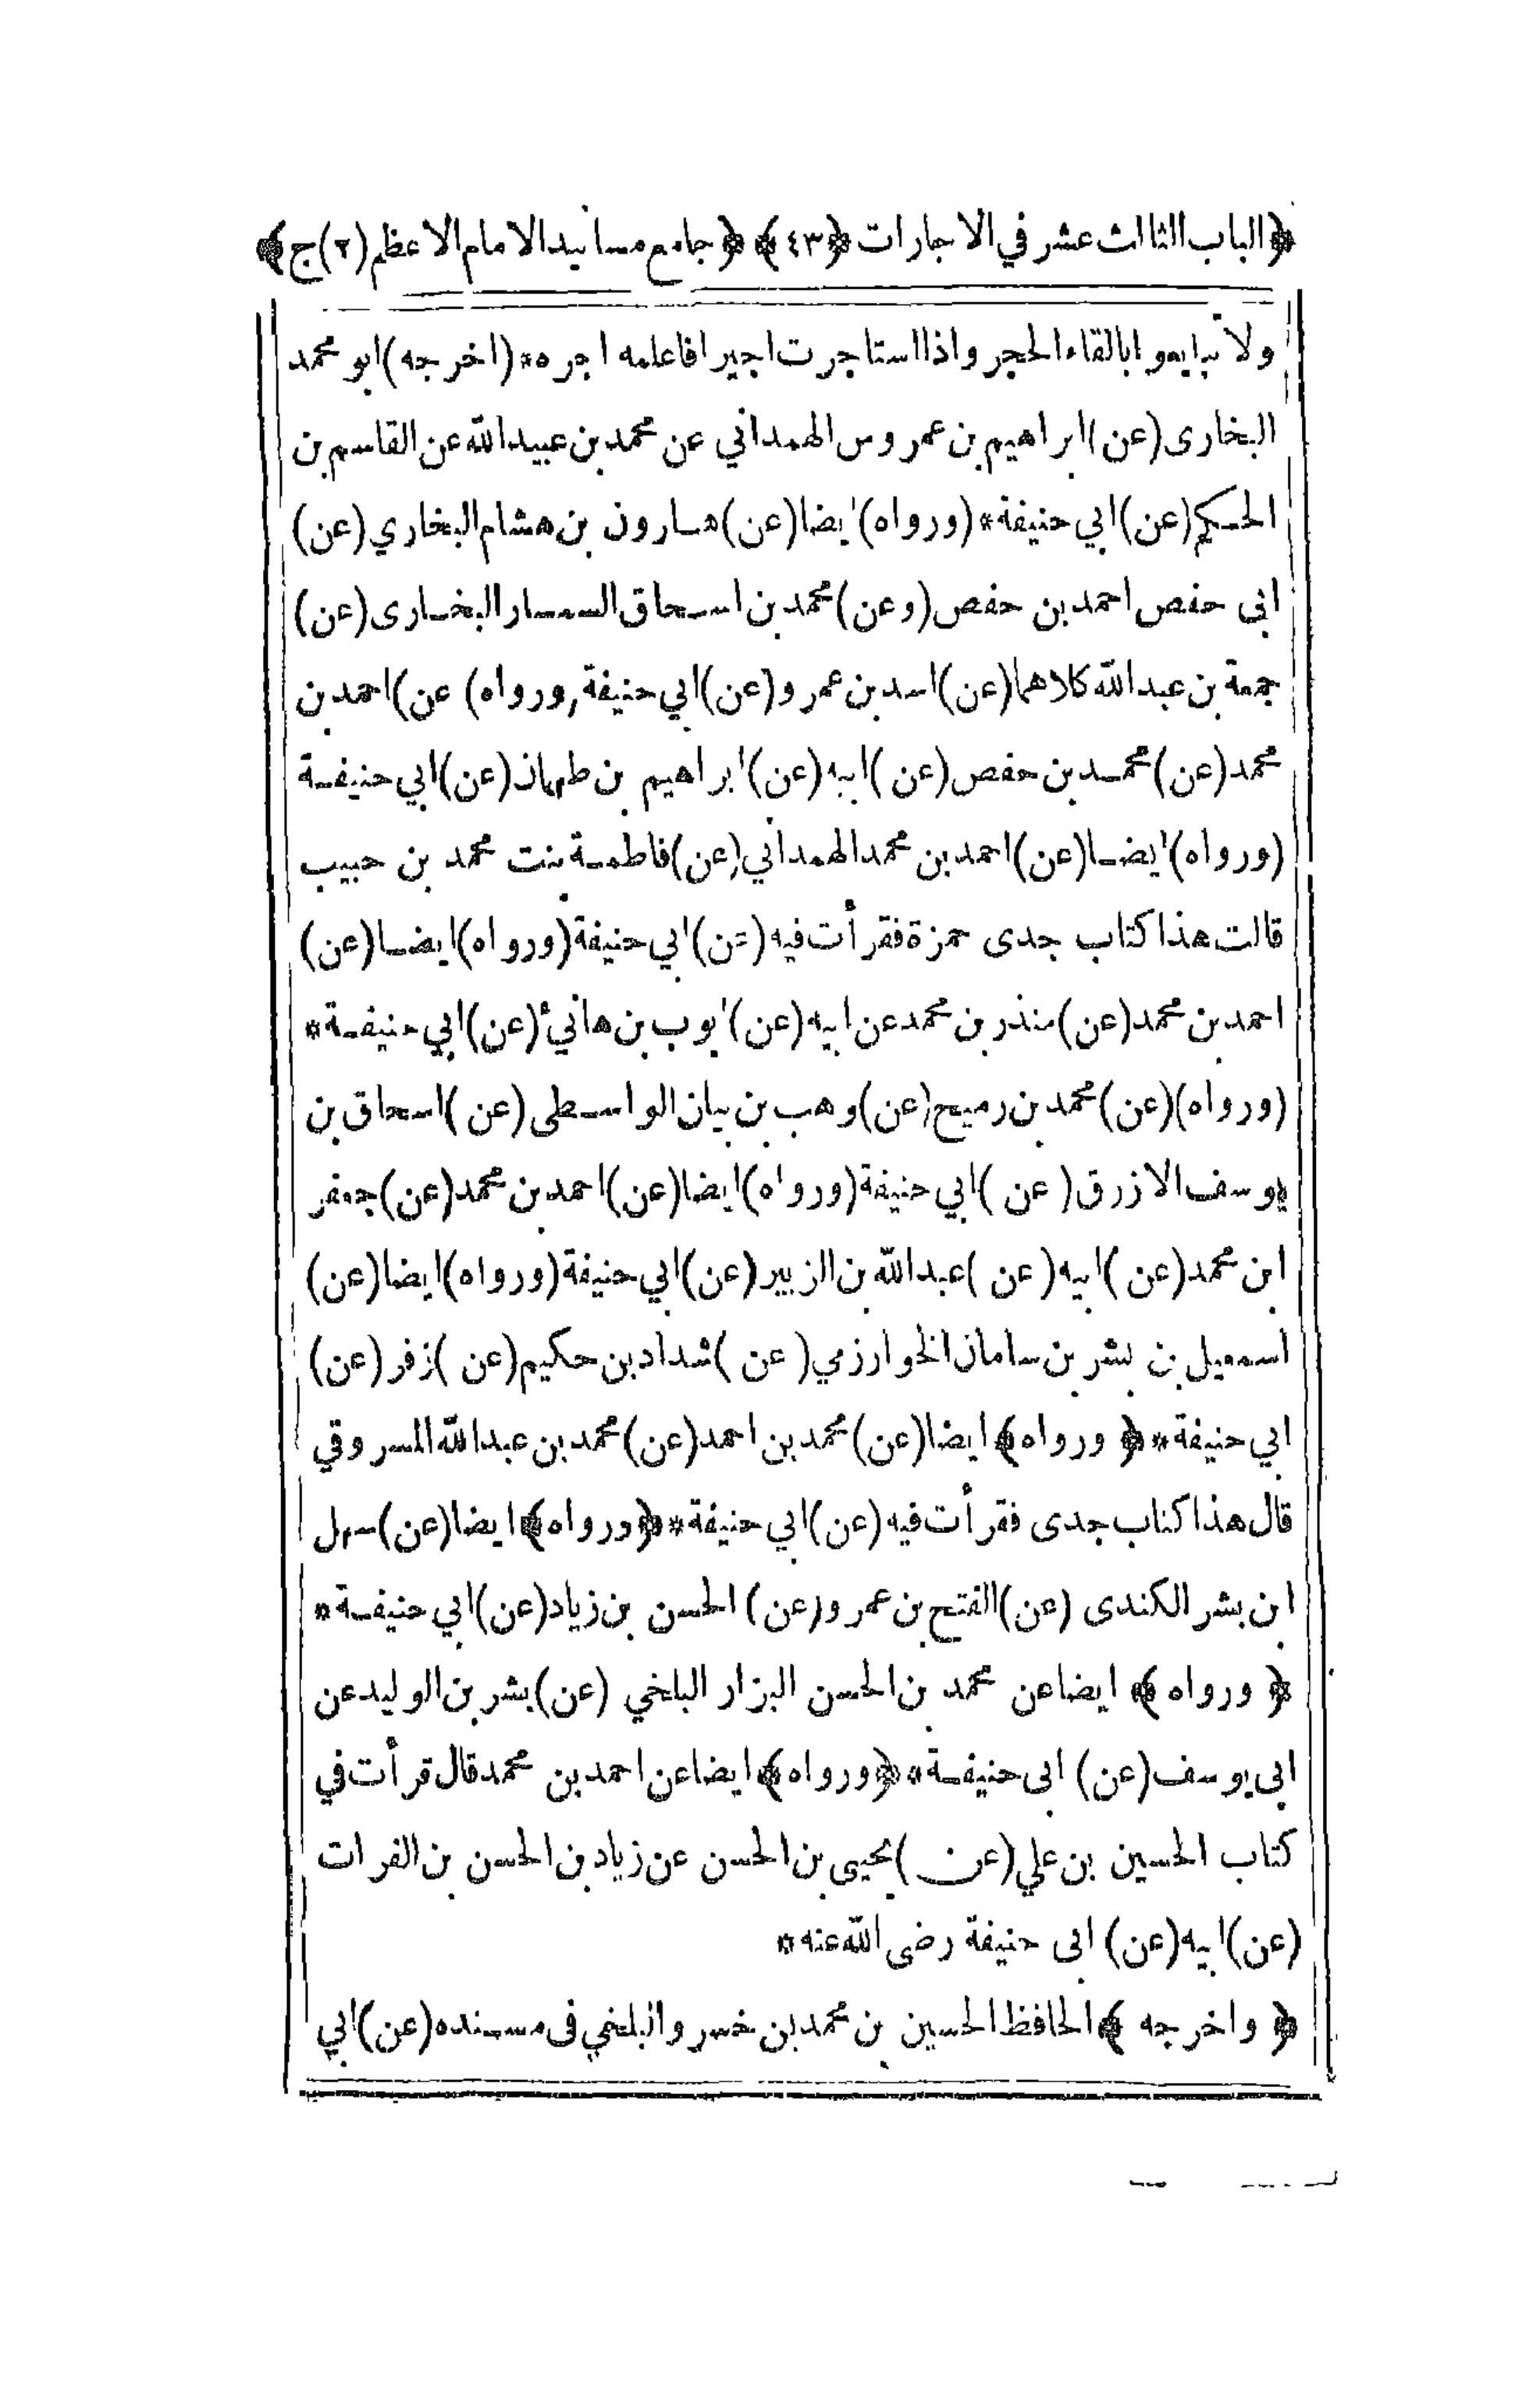 ﴿الباب الثالث عشر في الاجارات﴾ ﴿٤٣﴾ ﴿جامع مسانيد الامام الاعظم (٢) ج﴾
ولا تبايعوا بالقاء الحجر واذا استاجرت اجيرا فاعلمه اجره * (اخرجه) ابو محمد
البخارى (عن) ابراهيم بن عمروس الهمداني عن محمد بن عبيد الله عن القاسم بن
الحكم (عن) ابي حنيفة * (ورواه) ايضا (عن) هارون بن هشام البخاري (عن)
ابى حفص احمد بن حفص (وعن) محمد بن اسحاق السمسار البخارى (عن)
جمعة بن عبد الله كلاهما (عن) اسد بن عمرو (عن) ابي حنيفة (ورواه) (عن) احمد بن
محمد (عن) محمد بن حفص (عن) ابيه (عن) ابراهيم بن طهمان (عن) ابي حنيفة
(ورواه) ايضا (عن) احمد بن محمد الهمداني (عن) فاطمة بنت محمد بن حبيب
قالت هذا كتاب جدى حمزة فقرأت فيه (عن) ابي حنيفة (ورواه) ايضا (عن)
احمد بن محمد (عن) منذر بن محمد عن ابيه (عن) ايوب بن هانئ (عن) ابي حنيفة *
(ورواه) (عن) محمد بن رميح (عن) وهب بن بيان الواسطى (عن) اسحاق بن
يوسف الازرق (عن) ابي حنيفة (ورواه) ايضا (عن) احمد بن محمد (عن) جعفر
ابن محمد (عن) ابيه (عن) عبد الله بن الزبير (عن) ابي حنيفة (ورواه) ايضا (عن)
اسمعيل بن بشر بن سامان الخوارزمي (عن) شداد بن حكيم (عن) زفر (عن)
ابي حنيفة * ﴿ورواه﴾ ايضا (عن) محمد بن احمد (عن) محمد بن عبد الله المسروقي
قال هذا كتاب جدى فقرأت فيه (عن) ابي حنيفة * ﴿ورواه﴾ ايضا (عن) سهل
ابن بشر الكندى (عن) الفتح بن عمرو (عن) الحسن بن زياد (عن) ابي حنيفة *
﴿ورواه﴾ ايضا عن محمد بن الحسن البزار البلخي (عن) بشر بن الوليد عن
ابى يوسف (عن) ابى حنيفة * ﴿ورواه﴾ ايضا عن احمد بن محمد قال قرأت في
كتاب الحسين بن علي (عن) يحيى بن الحسن عن زياد بن الحسن بن الفرات
(عن) ابيه (عن) ابى حنيفة رضى الله عنه *
﴿واخرجه﴾ الحافظ الحسين بن محمد بن خسرو البلخي فى مسنده (عن) ابي